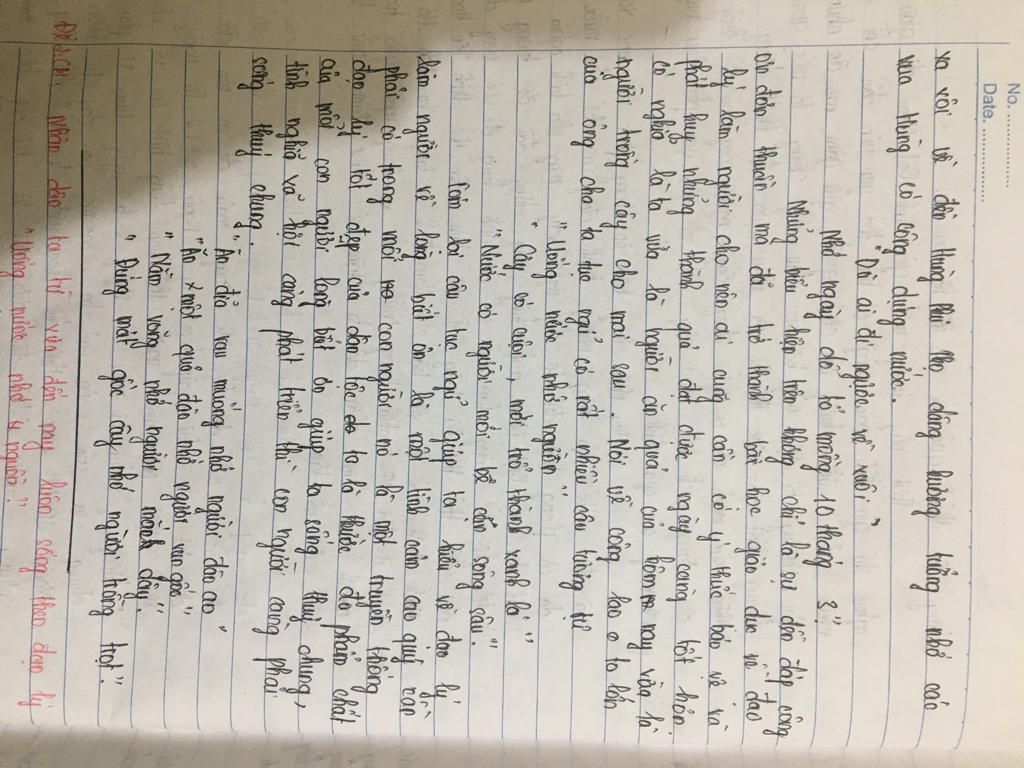 No. ..................
Date. ..................
xa xôi về đền Hùng Phú Thọ dâng hương tưởng nhớ các
vua Hùng có công dựng nước.
"Dù ai đi ngược về xuôi"
Nhớ ngày dỗ tổ mồng 10 tháng 3".
Những biểu hiện trên không chỉ là sự đền đáp công
ơn đơn thuần mà đã trở thành bài học giáo dục về đạo
lý làm người cho nên ai cũng cần có ý thức bảo vệ và
phát huy những thành quả đạt được ngày càng tốt hơn
có nghĩa là ta vừa là người ăn quả của hôm nay vừa là
người trồng cây cho mai sau. Nói về công lao to lớn
của ông cha ta tục ngữ có rất nhiều câu tương tự
"Uống nước nhớ nguồn"
"Cây có cội, mới trổ thành xanh lá"
"Nước có người mới bể cả sông sâu."
Tóm lại câu tục ngữ giúp ta hiểu về đạo lý
làm người về lòng biết ơn là một tình cảm cao quý cần
phải có trong mỗi con người nó là một truyền thống
đạo lý tốt đẹp của dân tộc ta là thước đo phẩm chất
của mỗi con người lòng biết ơn giúp ta sống thuỷ chung,
tình nghĩa xã hội càng phát triển thì con người càng phải
sống thuỷ chung.
"Ăn đĩa rau muống nhớ người đào ao"
"Ăn một quả đào nhớ người vun gốc"
"Nằm võng nhớ người mắc dây."
"Đứng mát gốc cây nhớ người trồng trọt".
Đề 2. CM nhân dân ta từ xưa đến nay luôn sống theo đạo lý
"Uống nước nhớ nguồn".